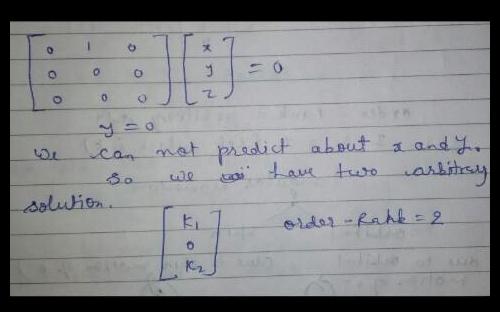 [0 1 0] [x]
[0 0 0] [y] = 0
[0 0 0] [z]
y = 0
we can not predict about x and y.
So we have two arbitray
solution.
[K1]
[0] order - Rank = 2
[K2]